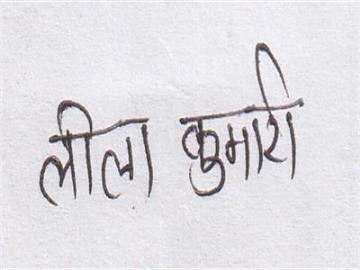 लीला कुमारी